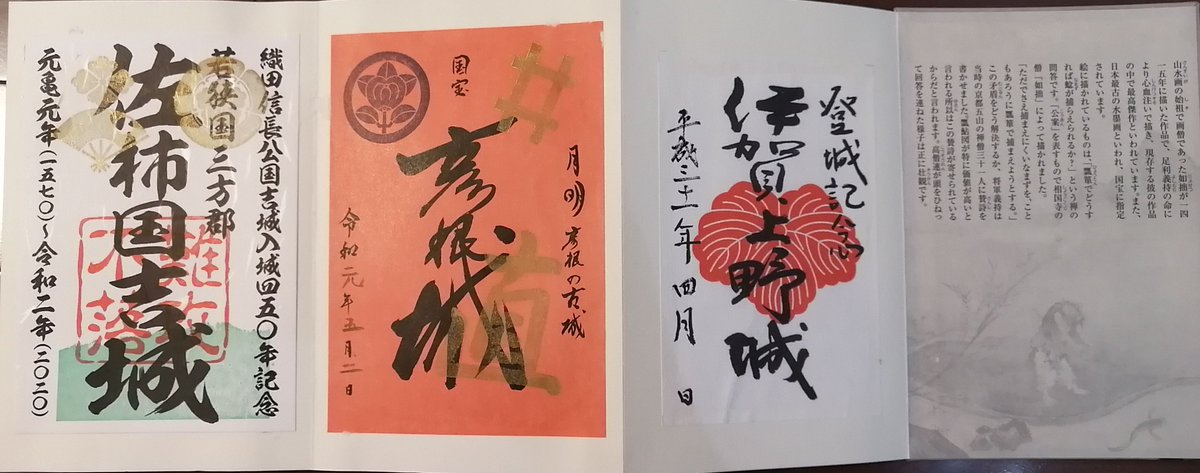 山水画の始祖で画僧であった如拙が一四
一五年に描いた作品で、足利義持の命に
より心血注いで描き、現存する彼の作品
の中で最高傑作といわれています。また、
日本最古の水墨画といわれ、国宝に指定
されています。
絵に描かれているものは、「瓢箪でどうす
れば鯰が捕らえられるか?」という禅の
問答です。「公案」を表すもので相国寺の
僧「如拙」によって描かれました。
「ただでさえ捕まえにくいなまずを、こと
もあろうに瓢箪で捕まえようとする。」
この矛盾をどう解決するか、将軍義持は
当時の京都五山の禅僧三十一人に賛詩を
書かせました。瓢鮎図が特に価値が高いと
言われる所以はこの賛詩が寄せられている
からだと言われます。高僧達が頭をひねっ
て回答を連ねた様子は正に壮観です。
登城記念
伊賀上野城
平成三十一年四月 日
月明 彦根の古城
井直
彦根城
国宝
令和元年五月二日
織田信長公国吉城入城四五〇年記念
若狭国三方郡
佐柿国吉城
難攻
不落
元亀元年(一五七〇)~令和二年(二〇二〇)